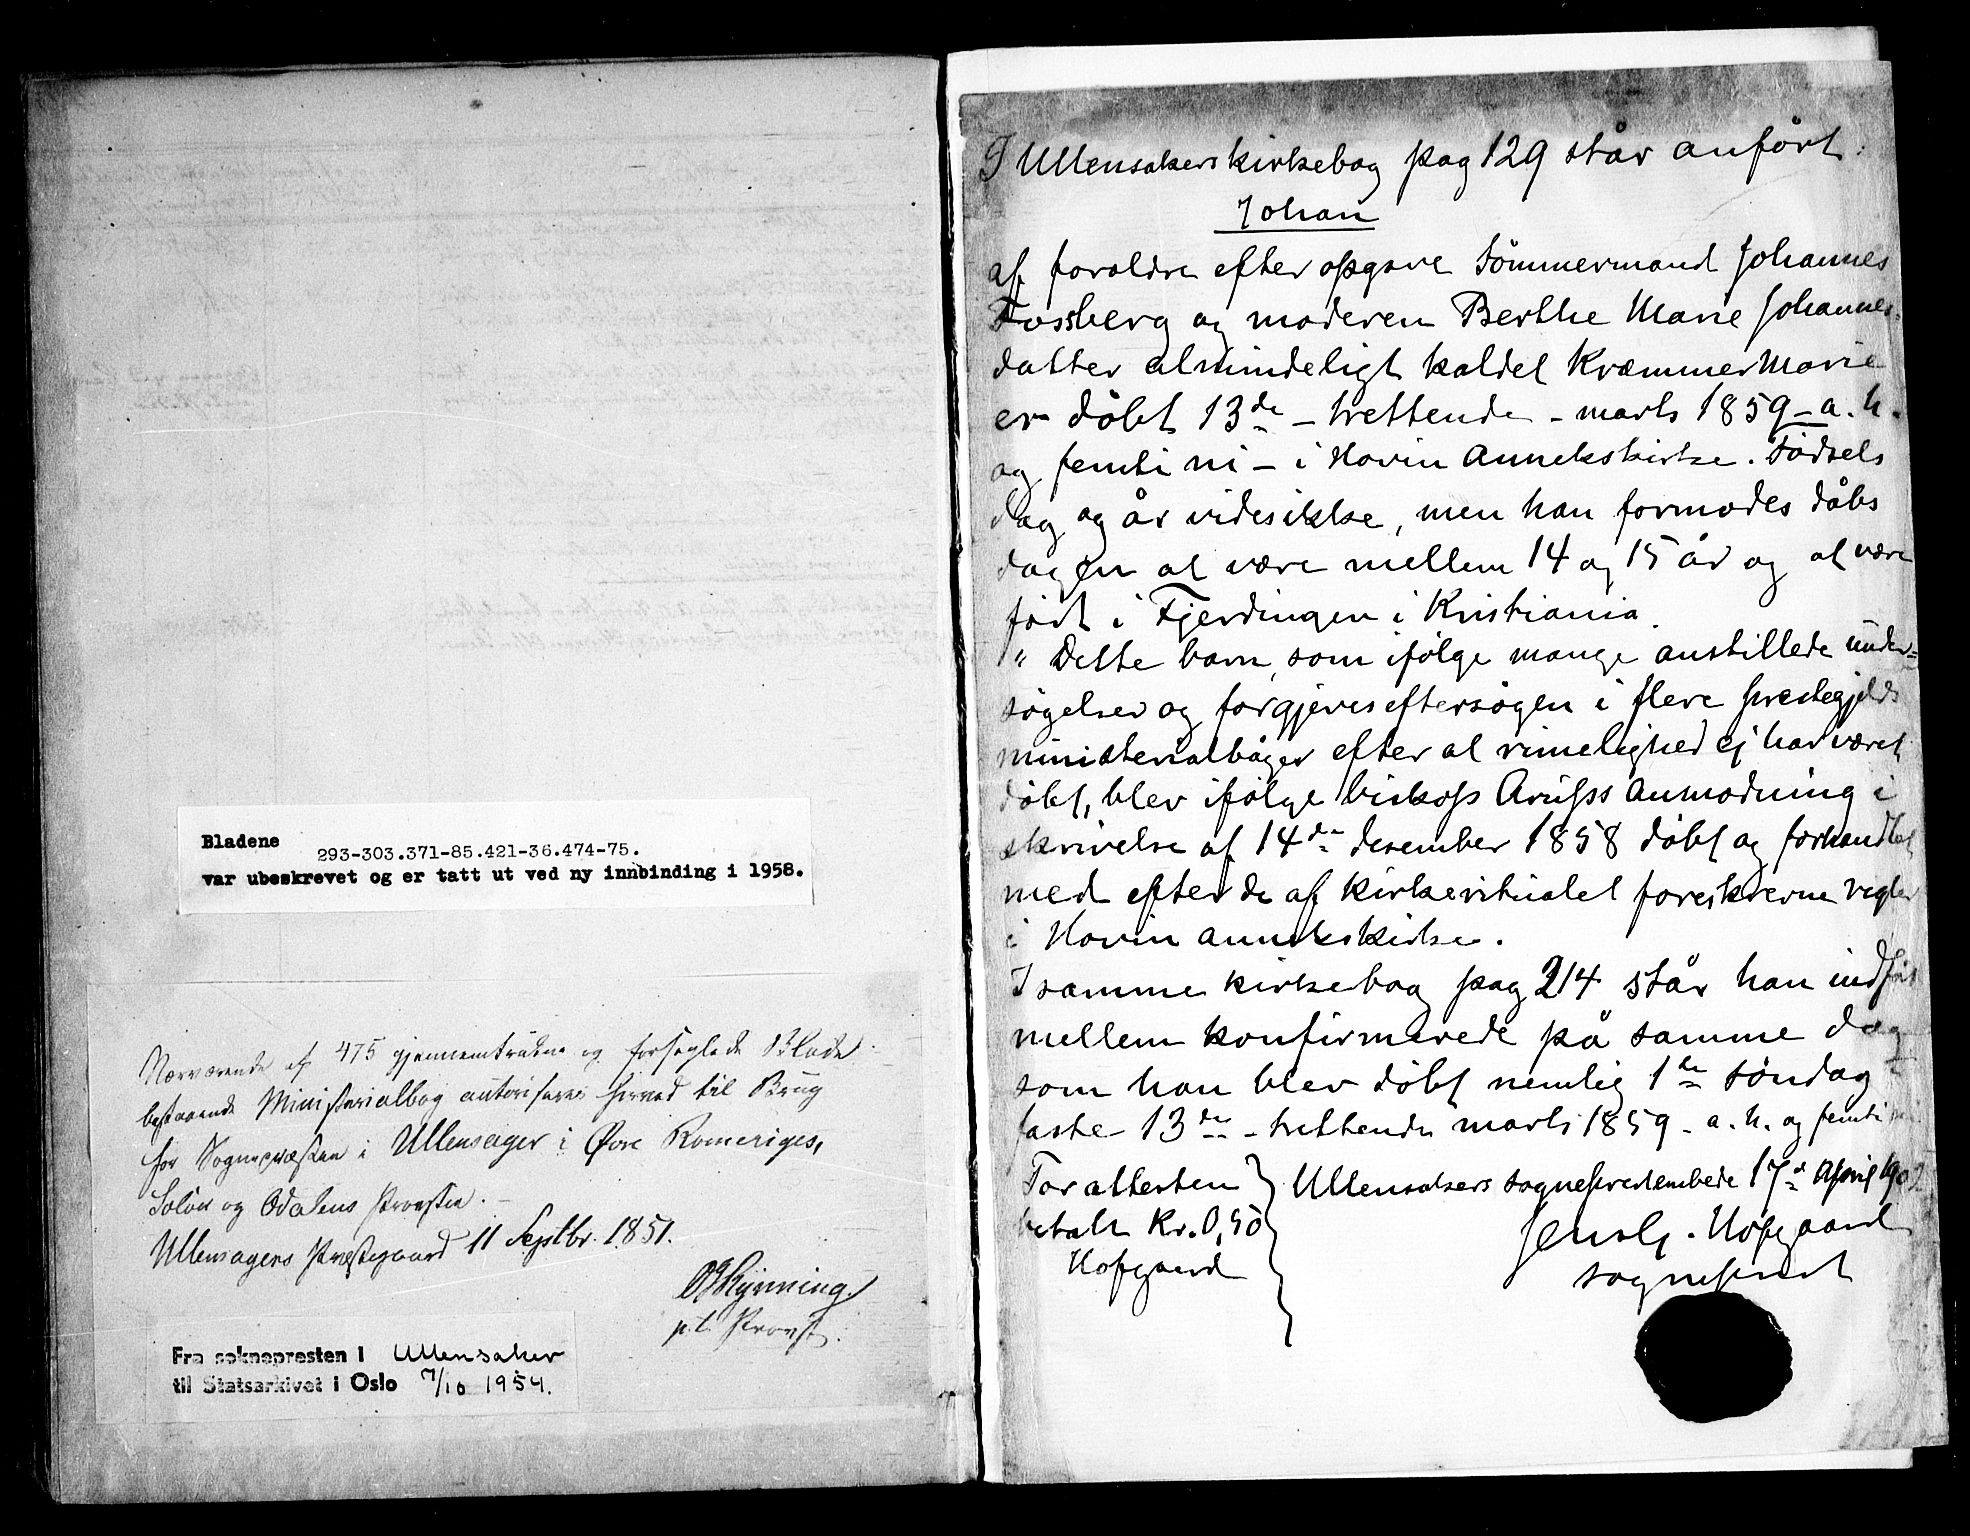 Bladene
293-303.371-85.421-36.474-75.
var ubeskrevet og er tatt ut ved ny innbinding i 1958.
Nærværende af 475 gjennemtrukne og forseglede Blade
bestaaende Ministerialbog autoriseres herved til Brug
for Sognepræsten i Ullensager i Øvre Romeriges,
Solør og Odalens Provstie.
Ullensagers Præstegaard 11 Septbr. 1851.
p.t. Provst.
Fra soknepresten i Ullensaker
til Statsarkivet i Oslo 7/10 1954.
I Ullensakers kirkebog pag 129 står anført:
Johan
af foroldre efter opgave Tömmermand Johannes
Fossberg og moderen Berthe Marie Johannes
datter almindeligt kaldet Kræmmer Marie
er döbt 13de – trettende – marts 1859 – a. h.
og femti ni – i Hovin Annekskirke. Födsels
dag og år vides ikke, men han formodes dåbs
dagen at være mellem 14 og 15 år og at være
födt i Fjerdingen i Kristiania.
" Dette barn, som ifölge mange anstillede under=
sögelser og forgjeves eftersögen i flere prestegjelds
ministerialböger efter al rimelighed ej har været
döbt, blev ifölge biskop Arups Anmodning i
skrivelse af 14de desember 1858 döbt og forhandlet
med efter de af kirkeritualet foreskrevne regler
i Hovin annekskirke.
I samme kirkebog pag 214 står han indfört
mellem konfirmerede på samme dag
som han blev döbt nemlig 1te söndag i
faste 13de – trettende marts 1859 – a. h. og femti ni
For attesten
betalt Kr. 0,50
Hofgaard
Ullensakers sogneprestembede 17de April 1902
Jens G. Hofgaard
sogneprest